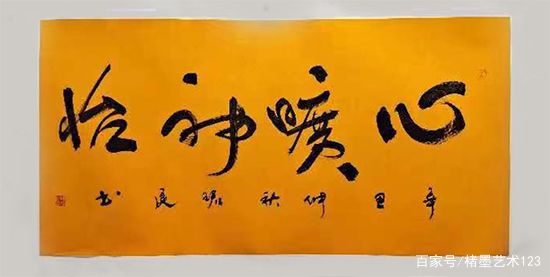 心曠神怡
辛丑仲秋良书
百家号/楮墨艺术123